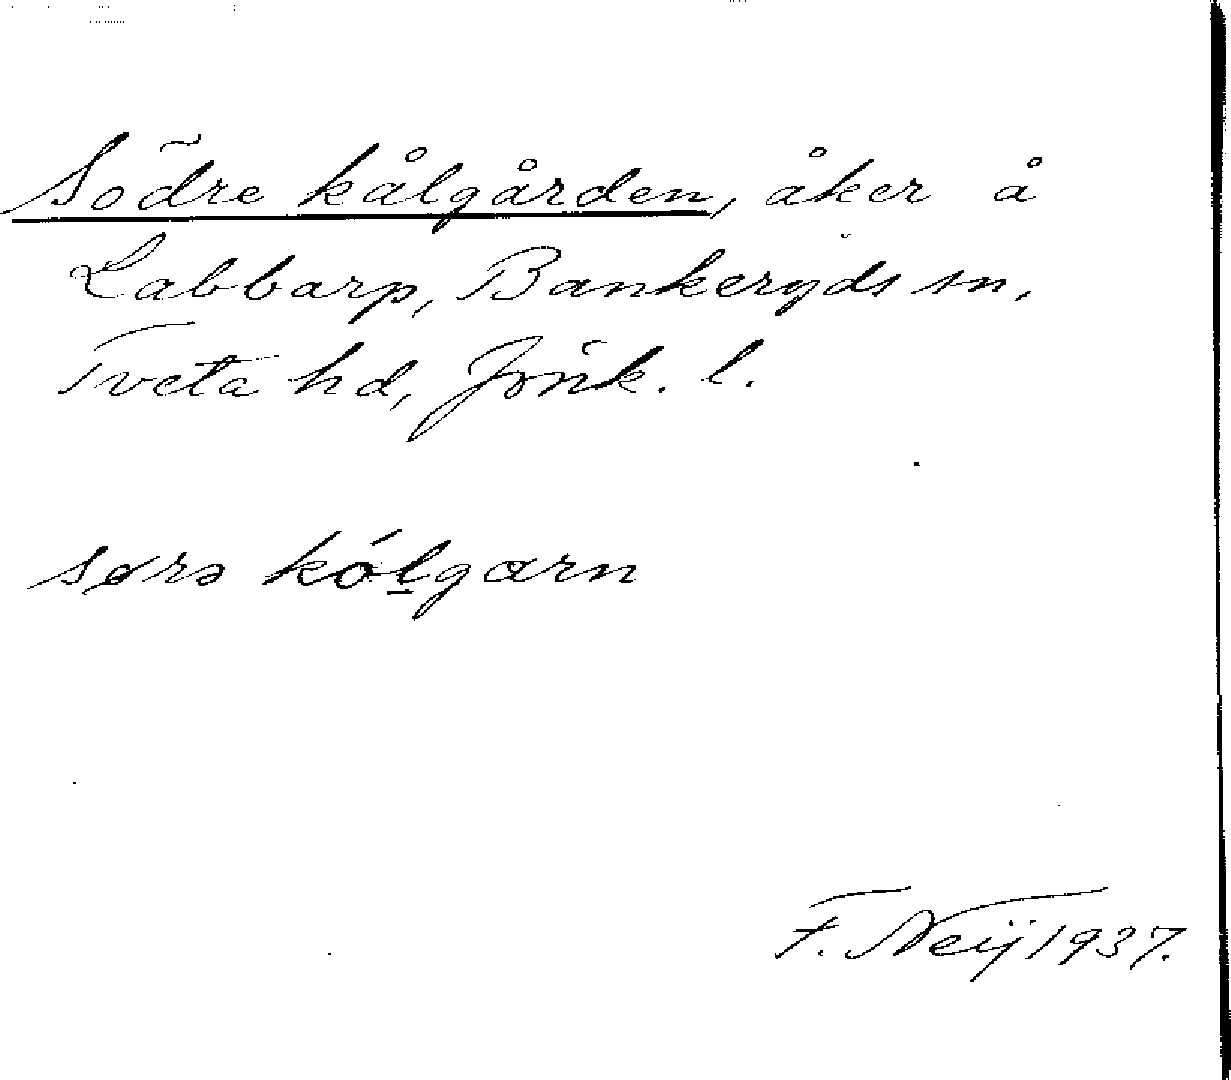 Södre kålgården, åker å
Labbarp, Bankeryds sn,
Tveta hd, Jönk. l.
sørə kóḻgɑrn
F. Neij 1937.